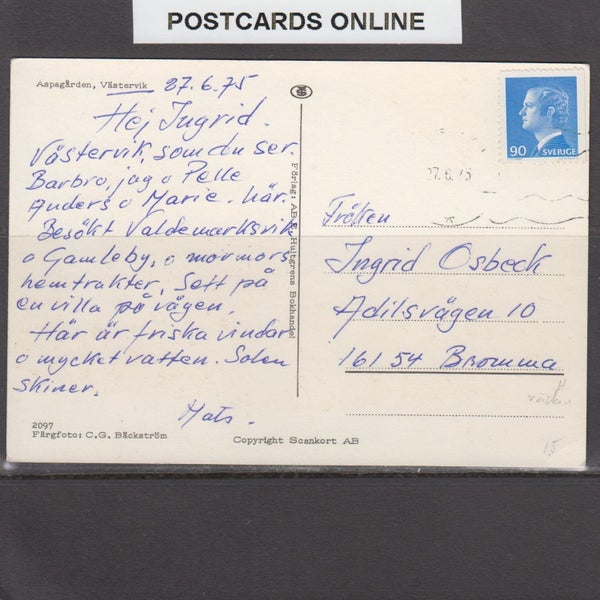 POSTCARDS ONLINE
Aspagården, Västervik
27.6.75
Hej Ingrid.
Västervik, som du ser.
Barbro, jag o Pelle
Anders o Marie. här.
Besökt Valdemarksvik
o Gamleby, o mormors
hemtrakter, Sett på
en villa på vägen.
Här är friska vindar
o mycket vatten. Solen
skiner.
Mats.
2097
Färgfoto: C.G. Bäckström
Förlag: AB E. Hultgrens Bokhandel
Copyright Scankort AB
90 SVERIGE
27.6.75
Fröken
Ingrid Osbeck
Adilsvägen 10
161 54 Bromma
15